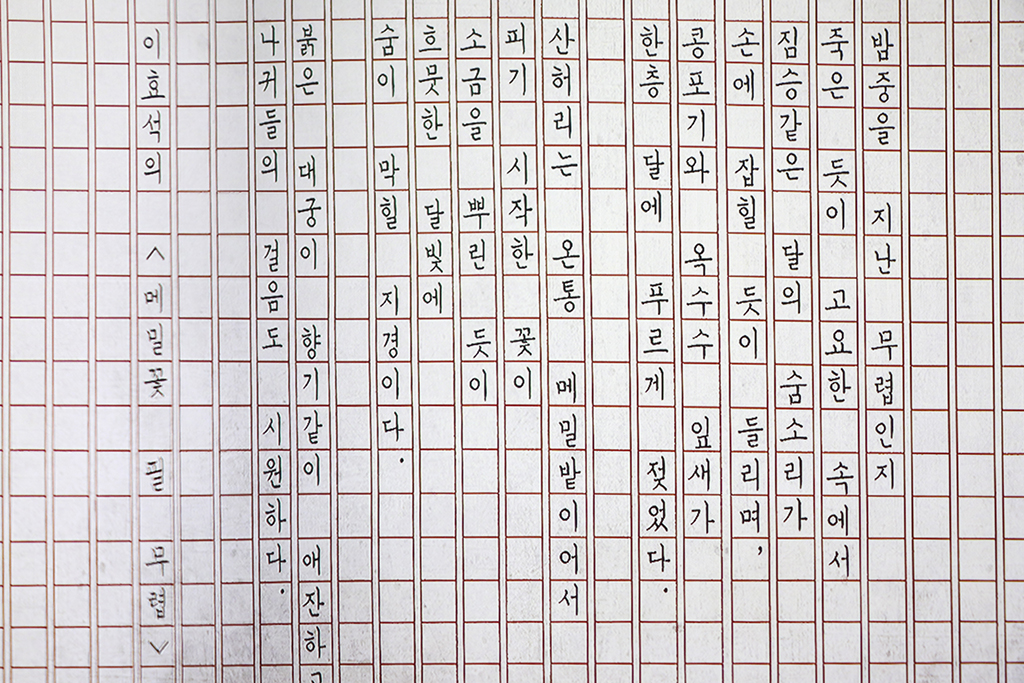 밤중을 지난 무렵인지
죽은 듯이 고요한 속에서
짐승같은 달의 숨소리가
손에 잡힐 듯이 들리며,
콩포기와 옥수수 잎새가
한층 달에 푸르게 젖었다.
산허리는 온통 메밀밭이어서
피기 시작한 꽃이
소금을 뿌린 듯이
흐뭇한 달빛에
숨이 막힐 지경이다.
붉은 대궁이 향기같이 애잔하고
나귀들의 걸음도 시원하다.
이효석의 <메밀꽃 필 무렵>